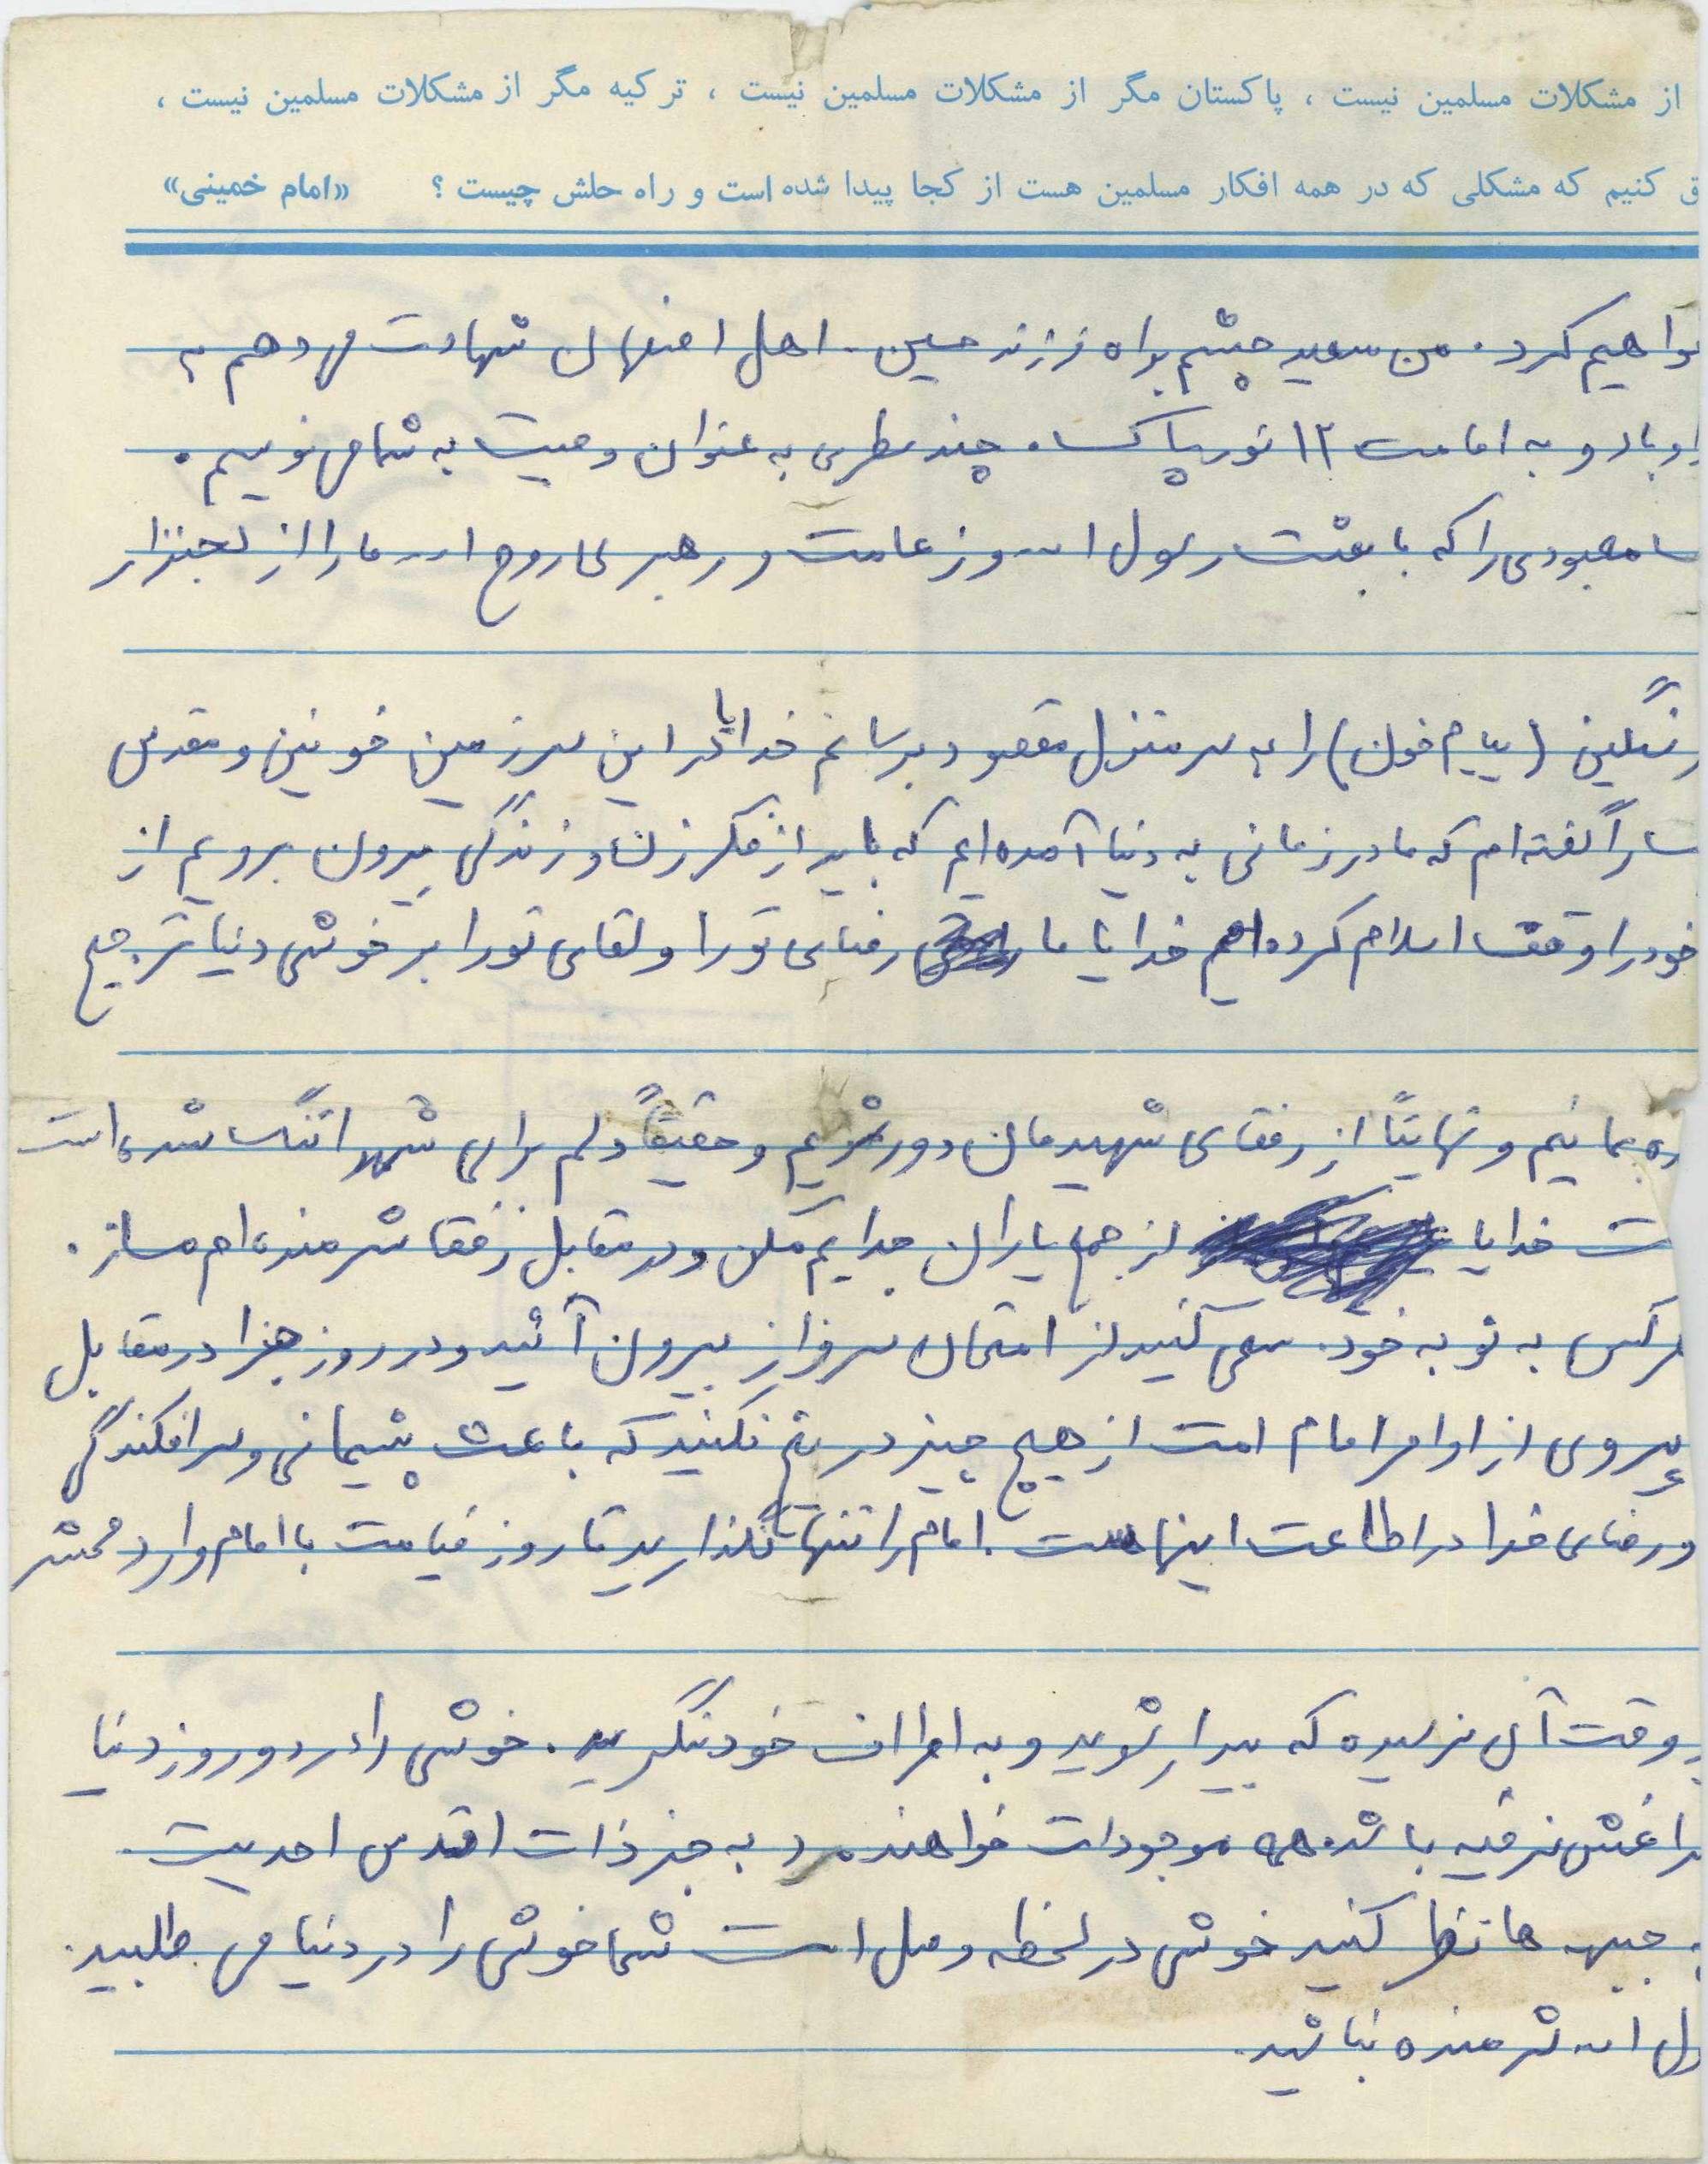 از مشکلات مسلمین نیست ، پاکستان مگر از مشکلات مسلمین نیست ، ترکیه مگر از مشکلات مسلمین نیست ،
ق کنیم که مشکلی که در همه افکار مسلمین هست از کجا پیدا شده است و راه حلش چیست ؟ «امام خمینی»
واهیم کرد . من سعید چشم براه فرزند حسین . اهل اصفهان شهادت می دهم به
او باد و به امامت ۱۲ نور پاک چند سطری به عنوان وصیت به شما می نویسم .
معبودی را که با بعثت رسول ا... و زعامت و رهبری روح ا... ما را از لجنزار
رنگین (پیام خون) را به سر منزل مقصود برسانم خدایا در این سرزمین خونین و مقدس
گفته ام که ما در زمانی به دنیا آمده ایم که باید از فکر زن و زندگی بیرون برویم از
خود را وقف اسلام کرده ایم خدایا ما رضای تو را و لقای تو را بر خوشی دنیا ترجیح
ه بمانیم و نهایتاً از رفقای شهیدمان دور شویم و حقیقتاً دلم برای شهدا تنگ شده است
ت خدایا از جمع یاران جدایم مکن و در مقابل رفقا شرمنده ام مساز .
هرکس به نوبه خود. سعی کنید از امتحان سرفراز بیرون آئید و در روز جزا در مقابل
پیروی از اوامر امام امت از هیچ چیز دریغ نکنید که باعث پشیمانی و سرافکندگی
و رضای خدا در اطاعت اینهاست . امام را تنها نگذارید تا روز قیامت با امام وارد محشر
وقت آن نرسیده که بیدار شوید و به اطراف خود بنگرید . خوشی را در دو روز دنیا
نرفته باشد. همه موجودات خواهند مرد به جز ذات اقدس احدیت .
جبهه ها نظر کنید خوشی در لحظه وصل است شما خوشی را در دنیا می طلبید .
ول ا... شرمنده نباشید.